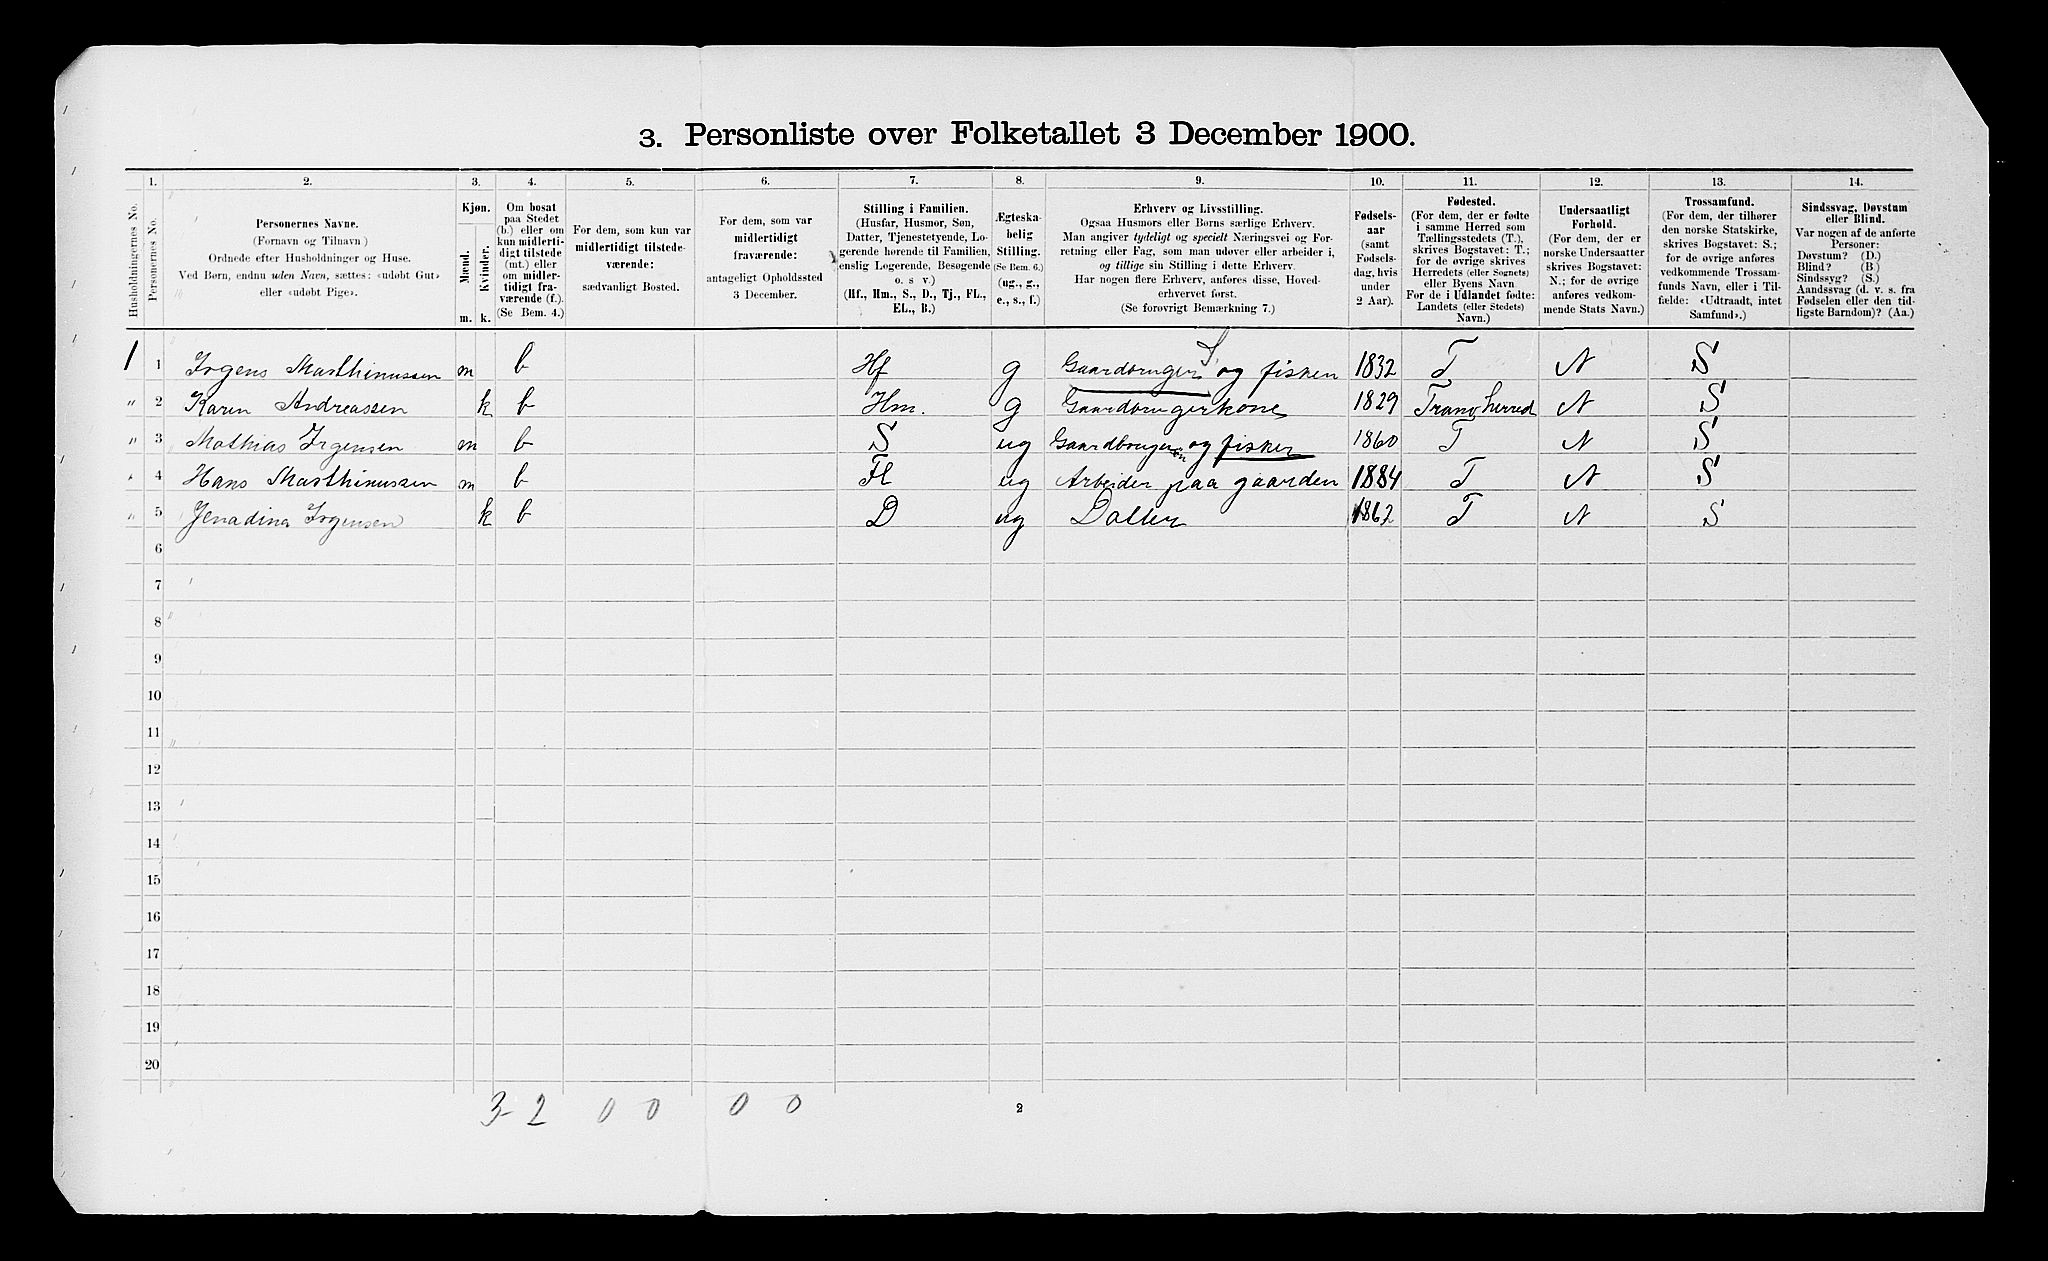 3. Personliste over Folketallet 3 December 1900.
Husholdningernes No.
1.
Personernes No.
2.
Personernes Navne.
(Fornavn og Tilnavn)
Ordnede efter Husholdninger og Huse.
Ved Børn, endnu uden Navn, sættes: «udøbt Gut»
eller «udøbt Pige».
3.
Kjøn.
Mænd.
Kvinder.
m. k.
4.
Om bosat
paa Stedet
(b.) eller om
kun midlerti-
digt tilstede
(mt.) eller
om midler-
tidigt fra-
værende (f.).
(Se Bem. 4.)
5.
For dem, som kun var
midlertidigt tilstede-
værende:
sædvanligt Bosted.
6.
For dem, som var
midlertidigt
fraværende:
antageligt Opholdssted
3 December.
7.
Stilling i Familien.
(Husfar, Husmor, Søn,
Datter, Tjenestetyende, Lo-
gerende hørende til Familien,
enslig Logerende, Besøgende
o. s v.)
(Hf., Hm., S., D., Tj., FL.,
EL., B.)
8.
Ægteska-
belig
Stilling.
(Se Bem. 6.)
(ug., g.,
e., s., f.)
9.
Erhverv og Livsstilling.
Ogsaa Husmors eller Børns særlige Erhverv.
Man angiver tydeligt og specielt Næringsvei og For-
retning eller Fag, som man udøver eller arbeider i,
og tillige sin Stilling i dette Erhverv.
Har nogen flere Erhverv, anføres disse, Hoved-
erhvervet først.
(Se forøvrigt Bemærkning 7.)
10.
Fødsels-
aar
(samt
Fødsels-
dag, hvis
under
2 Aar).
11.
Fødested.
(For dem, der er fødte
i samme Herred som
Tællingsstedets (T.),
skrives Bogstavet: T.;
for de øvrige skrives
Herredets (eller Sognets)
eller Byens Navn
For de i Udlandet fødte:
Landets (eller Stedets)
Navn.)
12.
Undersaatligt
Forhold.
(For dem, der er
norske Undersaatter
skrives Bogstavet:
N.; for de øvrige
anføres vedkom-
mende Stats Navn.)
13.
Trossamfund.
(For dem, der tilhører
den norske Statskirke,
skrives Bogstavet: S.;
for de øvrige anføres
vedkommende Trossam-
funds Navn, eller i Til-
fælde: «Udtraadt, intet
Samfund».)
14.
Sindssvag, Døvstum
eller Blind.
Var nogen af de anførte
Personer:
Døvstum? (D.)
Blind? (B)
Sindssyg? (S.)
Aandssvag (d. v. s. fra
Fødselen eller den tid-
ligste Barndom)? (Aa.)
1 1 Irgens Marthinussen m b Hf g Gaardbruger S. og fisker 1832 T N S
" 2 Karen Andreassen k b Hm. g Gaardbrugerkone 1829 Tranø herred N S
" 3 Mathias Irgensen m b S ug Gaardbruger og fisker 1860 T N S
" 4 Hans Marthinussen m b Fl ug Arbeider paa gaarden 1884 T N S
" 5 Jenadina Irgensen k b D ug Datter 1862 T N S
6
7
8
9
10
11
12
13
14
15
16
17
18
19
20
3-2 0 0 0 0
2